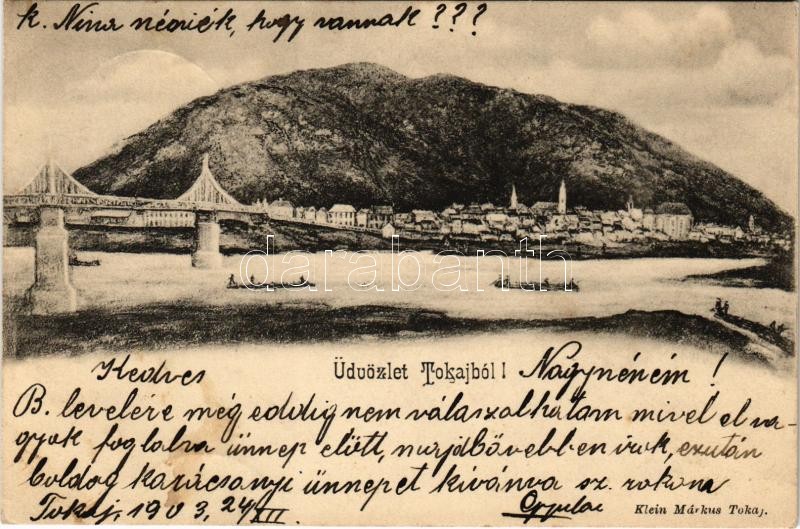 k. Nina néniék, hogy vannak ???
darabanth
Kedves Üdvözlet Tokajból! Nagynéném!
B. levelére még eddig nem válaszolhatam mivel el va-
gyok foglalva ünnep előtt, majdbővebben irok, ezután
boldog karácsonyi ünnepet kívánva sz. rokona
Tokaj, 1903, 24/XII. Gyula
Klein Márkus Tokaj.